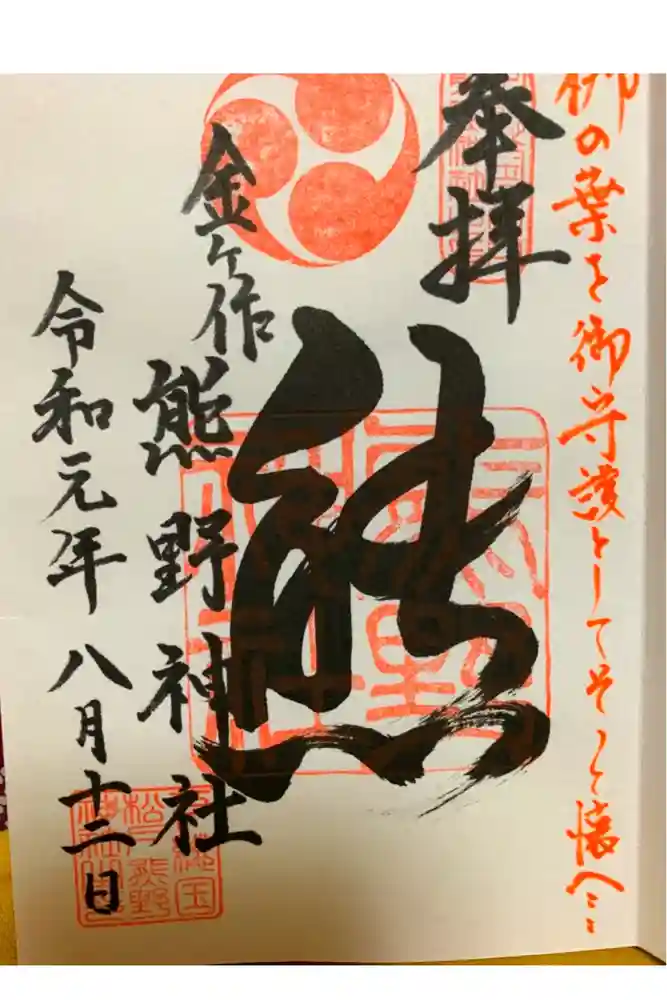 梛の葉を御守護としてそっと懐へ…
奉拝
熊
金ケ作
熊野神社
令和元年八月十二日